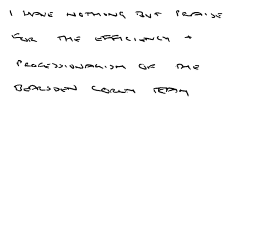 I HAVE NOTHING BUT PRAISE
FOR THE EFFICIENCY +
PROFESSIONALISM OF THE
BEARSDEN TEAM